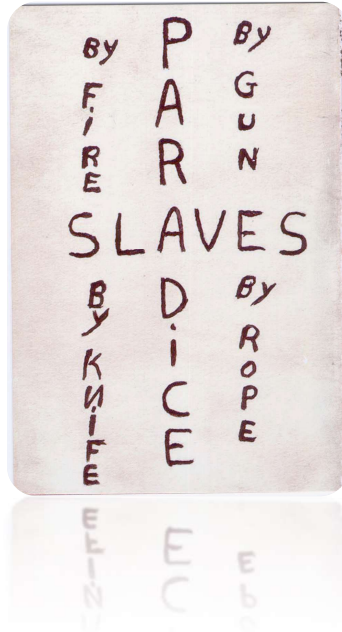 By FiRE
PARADiCE
By GUN
SLAVES
By KNiFE
By ROPE